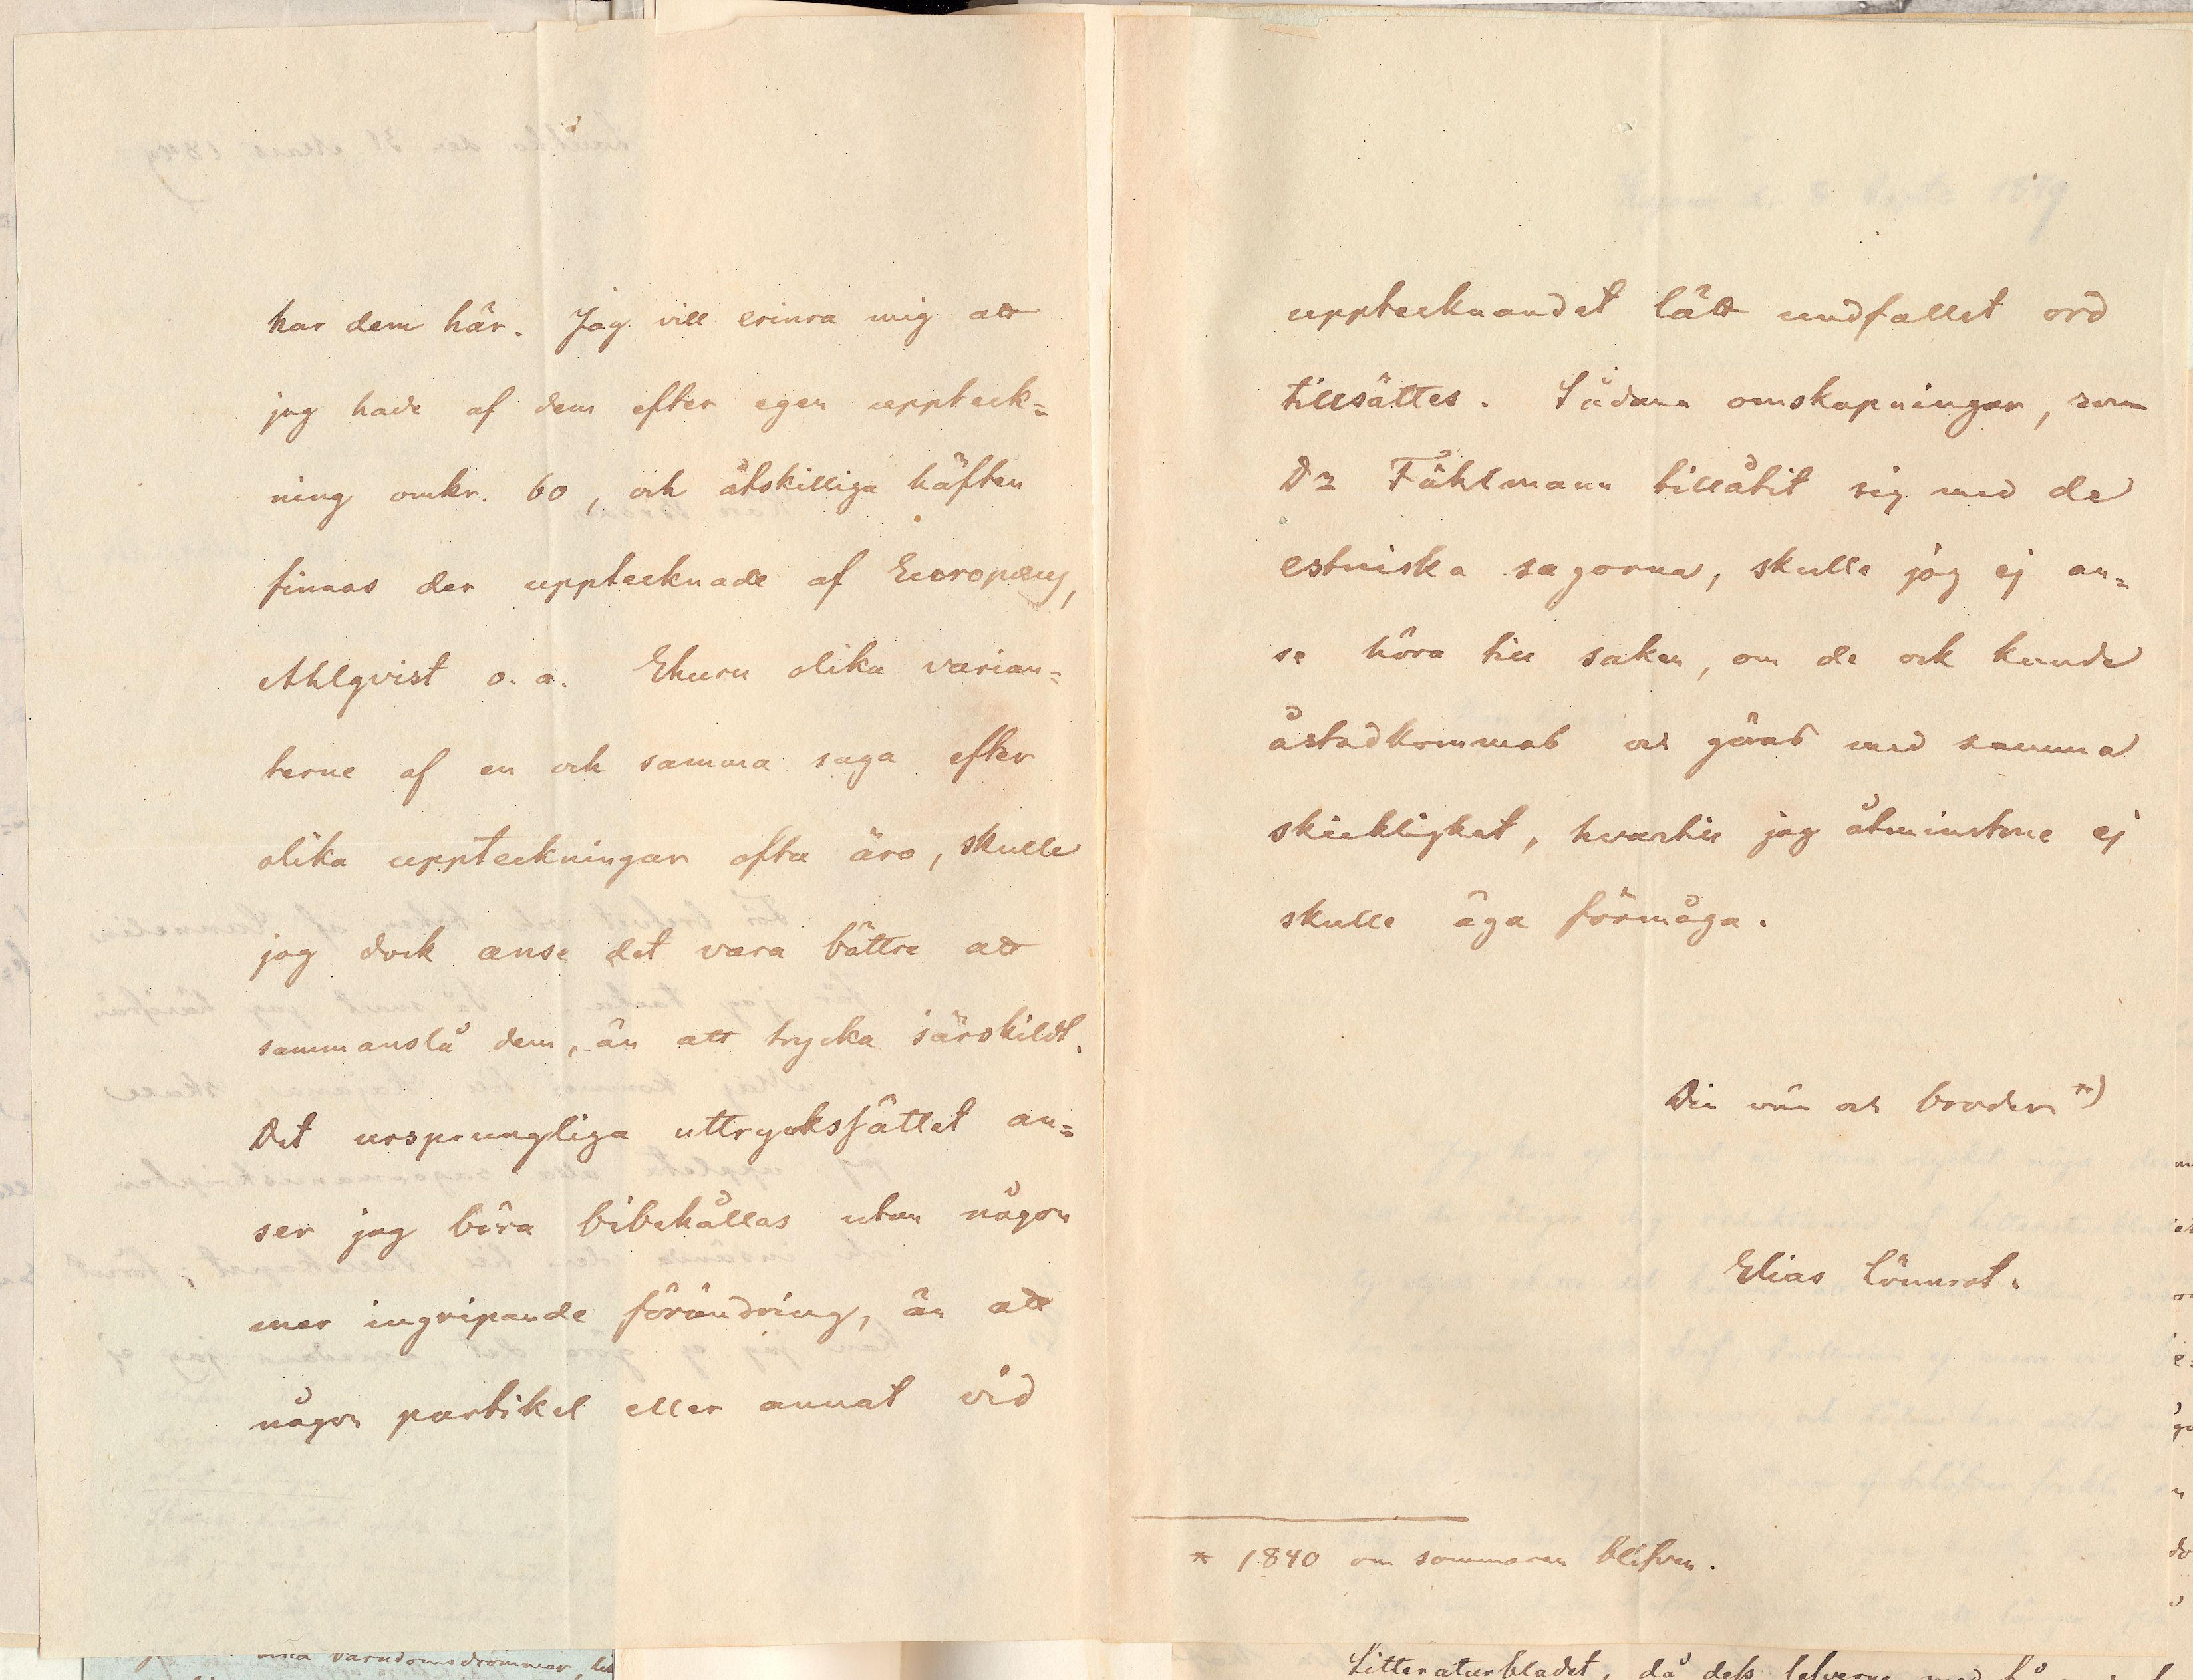 har dem här. Jag vill erinra mig att
jag hade af dem efter egen uppteck=
ning omkr. 60, och åtskilliga häften
finnas der upptecknade af Europæus,
Ahlqvist o. a. Ehuru olika varian=
terne af en och samma saga efter
olika uppteckningar ofta äro, skulle
jag dock anse det vara bättre att
sammanslå dem, än att trycka särskildt.
Det ursprungliga uttryckssättet an=
ser jag böra bibehållas utan någon
mer ingripande förändring, än att
någon partikel eller annat vid
upptecknandet lätt undfallet ord
tillsättes. Sådana omskapningar, som
Dr Fählmann tillåtit sig med de
estniska sagorna, skulle jag ej an=
se höra till saken, om de ock kunde
åstadkommas och göras med samma
skicklighet, hvartill jag åtminstone ej
skulle äga förmåga.
Din vän och broder *)
Elias Lönnrot.
* 1840 om sommaren blifven.
Litteraturbladet, då dess